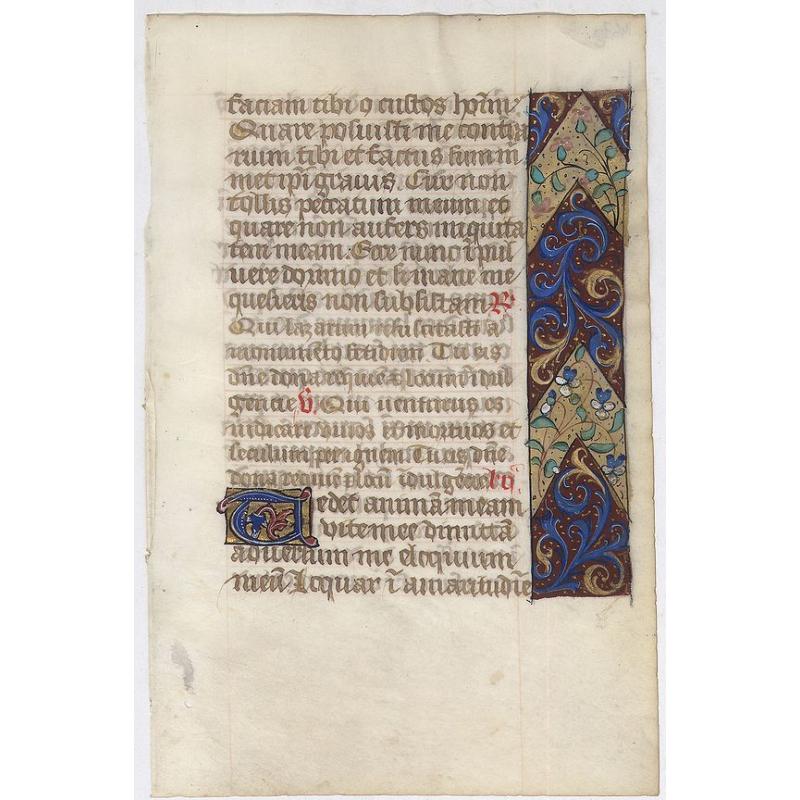 faciam tibi o custos hoīm
Quare posuisti me contra
rium tibi et factus sum m
met ipī gravis. Cur non
tollis peccatum meum et
quare non aufers iniquita
tem meam. Ecce nunc ī pul
vere dormio et si mane me
quesieris non subsistam R.
Qui lazarum resuscitasti a
monumēto fetidum Tu eis
dn̄e dona requiē & locum īdul
gencie V. Qui venturus es
iudicare vivos et mortuos et
seculum per ignem Tu eis dn̄e
dona requiē & locū īdulgēcie
Tedet animā meam
vite mee dimittā
adversum me eloquium
meū Loquar ī amaritudīe